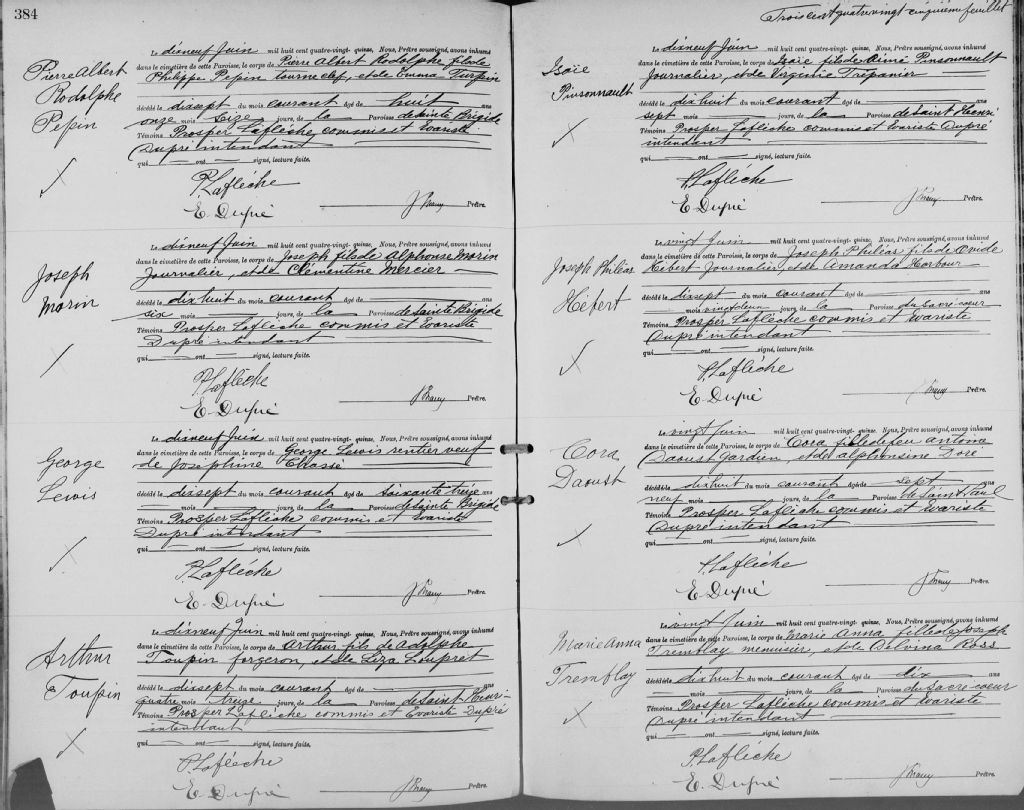 384
Pierre Albert
Rodolphe
Pepin
Le dixneuf Juin mil huit cent quatre-vingt-quinze, Nous, Prêtre soussigné, avons inhumé
dans le cimetière de cette Paroisse, le corps de Pierre Albert Rodolphe fils de
Philippe Pepin tourneclef, et de Emma Turpin
décédé le dixsept du mois courant âgé de huit ans
onze mois jours, de la Paroisse de Sainte Brigide
Témoins Prosper Laflèche, commis et Evariste
Dupré intendant
qui — ont — signé, lecture faite.
P. Laflèche
E. Dupré
Prêtre.
Joseph
Morin
Le dixneuf Juin mil huit cent quatre-vingt-quinze, Nous, Prêtre soussigné, avons inhumé
dans le cimetière de cette Paroisse, le corps de Joseph fils de Alphonse Morin
Journalier, et de Clémentine Mercier
décédé le dixhuit du mois courant âgé de ans
six mois jours, de la Paroisse de Sainte Brigide
Témoins Prosper Laflèche commis et Evariste
Dupré intendant
qui — ont — signé, lecture faite.
P. Laflèche
E. Dupré
Prêtre.
George
Lewis
Le dixneuf Juin mil huit cent quatre-vingt-quinze, Nous, Prêtre soussigné, avons inhumé
dans le cimetière de cette Paroisse, le corps de George Lewis rentier veuf
de Joséphine Chassé
décédé le dixsept du mois courant âgé de soixante treize ans
— mois — jours, de la Paroisse de Sainte Brigide
Témoins Prosper Laflèche commis et Evariste
Dupré intendant
qui — ont — signé, lecture faite.
P. Laflèche
E. Dupré
Prêtre.
Arthur
Toupin
Le dixneuf Juin mil huit cent quatre-vingt-quinze, Nous, Prêtre soussigné, avons inhumé
dans le cimetière de cette Paroisse, le corps de Arthur fils de Adolphe
Toupin forgeron, et de Liza Loupret
décédé le dixsept du mois courant âgé de ans
quatre mois treize jours, de la Paroisse de Saint Henri
Témoins Prosper Laflèche commis et Evariste Dupré
intendant
qui — ont — signé, lecture faite.
P. Laflèche
E. Dupré
Prêtre.
Trois cent quatre vingt-cinquième feuillet
Isaïe
Pinsonnault
Le dixneuf Juin mil huit cent quatre-vingt-quinze, Nous, Prêtre soussigné, avons inhumé
dans le cimetière de cette Paroisse, le corps de Isaïe fils de Aimé Pinsonnault
Journalier, et de Virginie Trépanier
décédé le dixhuit du mois courant âgé de ans
sept mois jours, de la Paroisse de Saint Henri
Témoins Prosper Laflèche commis et Evariste Dupré
intendant
qui — ont — signé, lecture faite.
P. Laflèche
E. Dupré
Prêtre.
Joseph Philias
Hébert
Le vingt Juin mil huit cent quatre-vingt-quinze, Nous, Prêtre soussigné, avons inhumé
dans le cimetière de cette Paroisse, le corps de Joseph Philias fils de Ovide
Hébert Journalier, et de Amanda Harbour
décédé le dixsept du mois courant âgé de ans
— mois vingtdeux jours, de la Paroisse du Sacré-coeur
Témoins Prosper Laflèche commis et Evariste
Dupré intendant
qui — ont — signé, lecture faite.
P. Laflèche
E. Dupré
Prêtre.
Cora
Daoust
Le vingt Juin mil huit cent quatre-vingt-quinze, Nous, Prêtre soussigné, avons inhumé
dans le cimetière de cette Paroisse, le corps de Cora fille de feu Antoine
Daoust Gardien, et de Alphonsine Doré
décédé le dixhuit du mois courant âgé de sept ans
neuf mois jours, de la Paroisse de Saint Paul
Témoins Prosper Laflèche commis et Evariste
Dupré intendant
qui — ont — signé, lecture faite.
P. Laflèche
E. Dupré
Prêtre.
Marie Anna
Tremblay
Le vingt Juin mil huit cent quatre-vingt-quinze, Nous, Prêtre soussigné, avons inhumé
dans le cimetière de cette Paroisse, le corps de Marie Anna, fille de Joseph
Tremblay menuisier, et de Delvina Ross
décédé le dixhuit du mois courant âgé de dix ans
— mois — jours, de la Paroisse du Sacré-coeur
Témoins Prosper Laflèche commis et Evariste
Dupré intendant
qui — ont — signé, lecture faite.
P. Laflèche
E. Dupré
Prêtre.